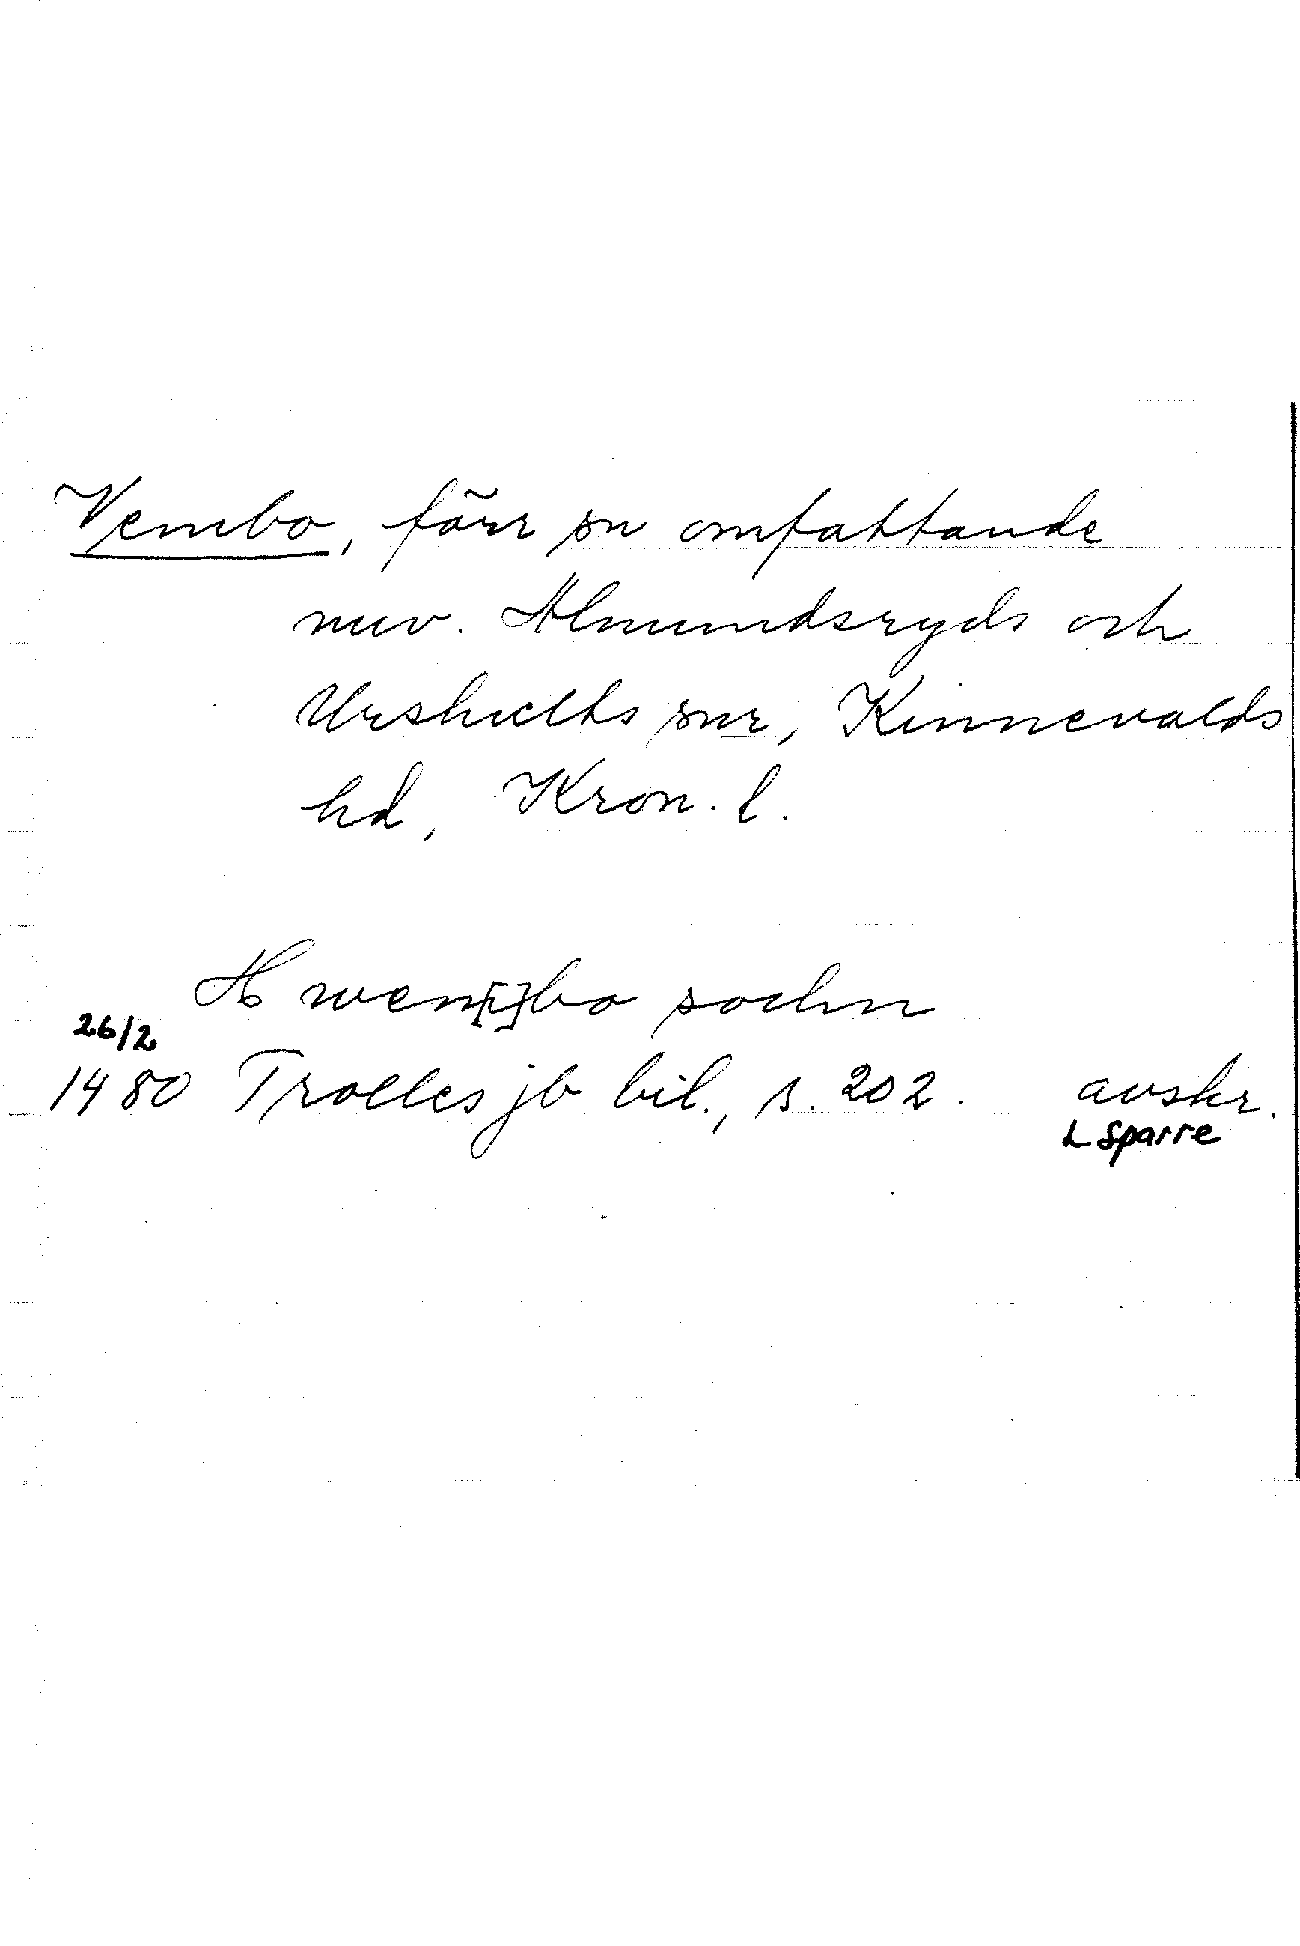 Vembo, förr sn omfattande
nuv. Almundsryds och
Urshults snr, Kinnevalds
hd, Kron. l.
Hwem[?]bo sochn
26/2
1480 Trolles jb bil., s. 202. avskr.
L Sparre